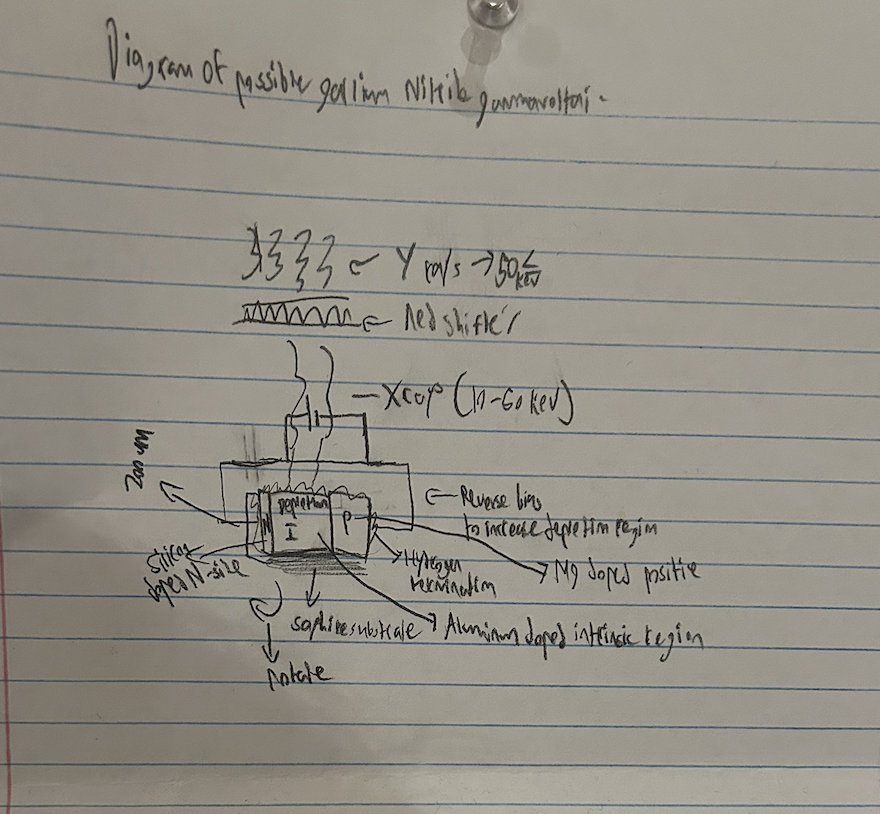 Diagram of possible gallium Nitride gammavoltai.
γ rays → 50 <
kev
Red shifter
Xray (10-60 kev)
200 nm
Reverse bias
to increase depletion region
Depletion
N
I
P
Silicon
doped N-side
Hydrogen
termination
Mg doped positive
saphire substrate
Aluminum doped intrinsic region
Rotate